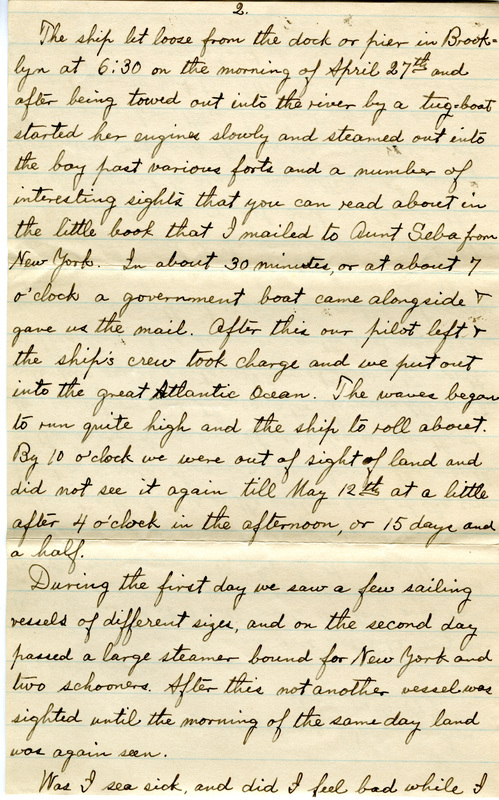 2.
The ship let loose from the dock or pier in Brook=
lyn at 6:30 on the morning of April 27th and
after being towed out into the river by a tug-boat
started her engines slowly and steamed out into
the bay past various forts and a number of
interesting sights that you can read about in
the little book that I mailed to Aunt Seba from
New York. In about 30 minutes, or at about 7
o'clock a government boat came alongside &
gave us the mail. After this our pilot left &
the ship's crew took charge and we put out
into the great Atlantic Ocean. The waves began
to run quite high and the ship to roll about.
By 10 o'clock we were out of sight of land and
did not see it again till May 12th at a little
after 4 o'clock in the afternoon, or 15 days and
a half.
During the first day we saw a few sailing
vessels of different sizes, and on the second day
passed a large steamer bound for New York and
two schooners. After this not another vessel was
sighted until the morning of the same day land
was again seen.
Was I sea sick, and did I feel bad while I